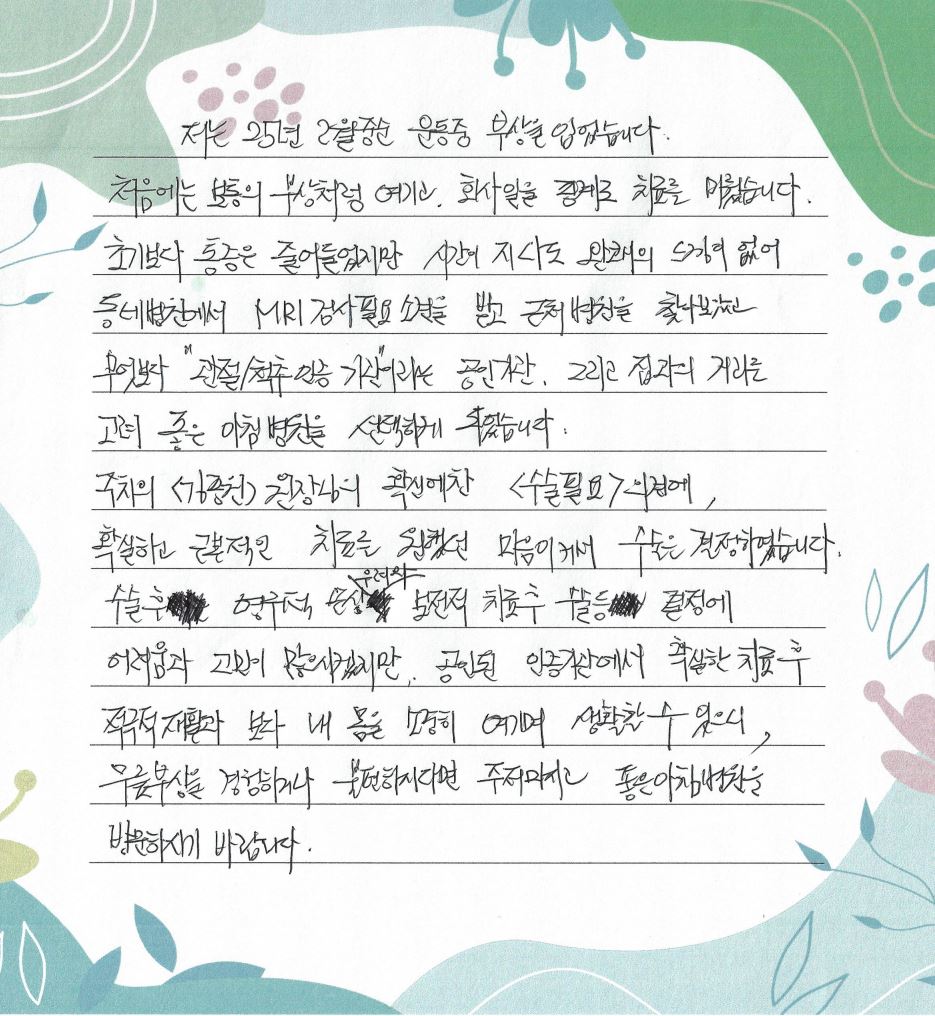 저는 25년 2월중순 운동중 부상을 입었습니다.
처음에는 보통의 부상처럼 여기고, 회사일을 핑계로 치료를 미뤘습니다.
초기보다 통증은 줄어들었지만 시간이 지나도 완쾌의 느낌이 없어
동네병원에서 MRI 검사필요 소견을 받고 근처병원을 찾아보았고
무엇보다 "관절/척추 인증 기관"이라는 공인기관, 그리고 집과의 거리를
고려 좋은 아침병원을 선택하게 되었습니다.
주치의 <김종천> 원장님의 확신에찬 <수술필요>의견에,
확실하고 근본적인 치료를 원했던 마음이커서 수술은 결정하였습니다.
수술후 영구적 손상 우려와 보전적 치료후 수술등 결정에
어려움과 고민이 많으시겠지만, 공인된 인증기관에서 확실한 치료후
적극적 재활과 보다 내 몸을 소중히 여기며 생활할 수 있으니,
무릎부상을 경험하거나 불편하시다면 주저마시고 좋은아침병원을
방문하시기 바랍니다.